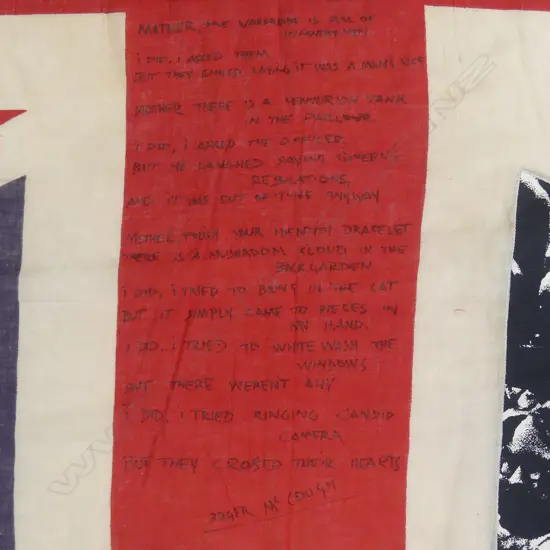 MOTHER THE WARDROBE IS FULL OF
INFANTRYMEN
I DID, I ASKED THEM
BUT THEY SMILED SAYING IT WAS A MANS LIFE
MOTHER THERE IS A CENTURION TANK
IN THE PARLOUR
I DID, I ASKED THE OFFICER,
BUT HE LAUGHED SAYING QUEEN'S
REGULATIONS,
AND IT WAS OUT OF TUNE ANYWAY
MOTHER YOUR IDENTITY BRACELET
THERE IS A MUSHROOM CLOUD IN THE
BACKGARDEN
I DID, I TRIED TO BRING IN THE CAT
BUT IT SIMPLY CAME TO PIECES IN
MY HAND.
I DID.. I TRIED TO WHITEWASH THE
WINDOWS
BUT THERE WERENT ANY
I DID, I TRIED RINGING CANDID
CAMERA
BUT THEY CROSED THEIR HEARTS
ROGER Mc GOUGH